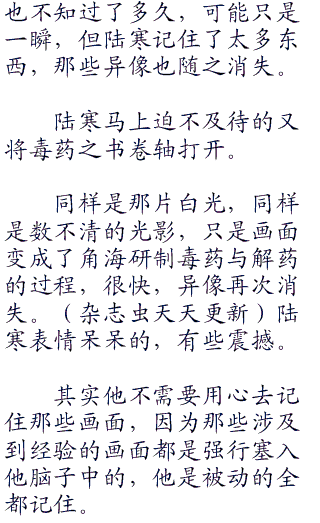 也不知过了多久，可能只是
一瞬，但陆寒记住了太多东
西，那些异像也随之消失。
陆寒马上迫不及待的又
将毒药之书卷轴打开。
同样是那片白光，同样
是数不清的光影，只是画面
变成了角海研制毒药与解药
的过程，很快，异像再次消
失。（杂志虫天天更新）陆
寒表情呆呆的，有些震撼。
其实他不需要用心去记
住那些画面，因为那些涉及
到经验的画面都是强行塞入
他脑子中的，他是被动的全
都记住。